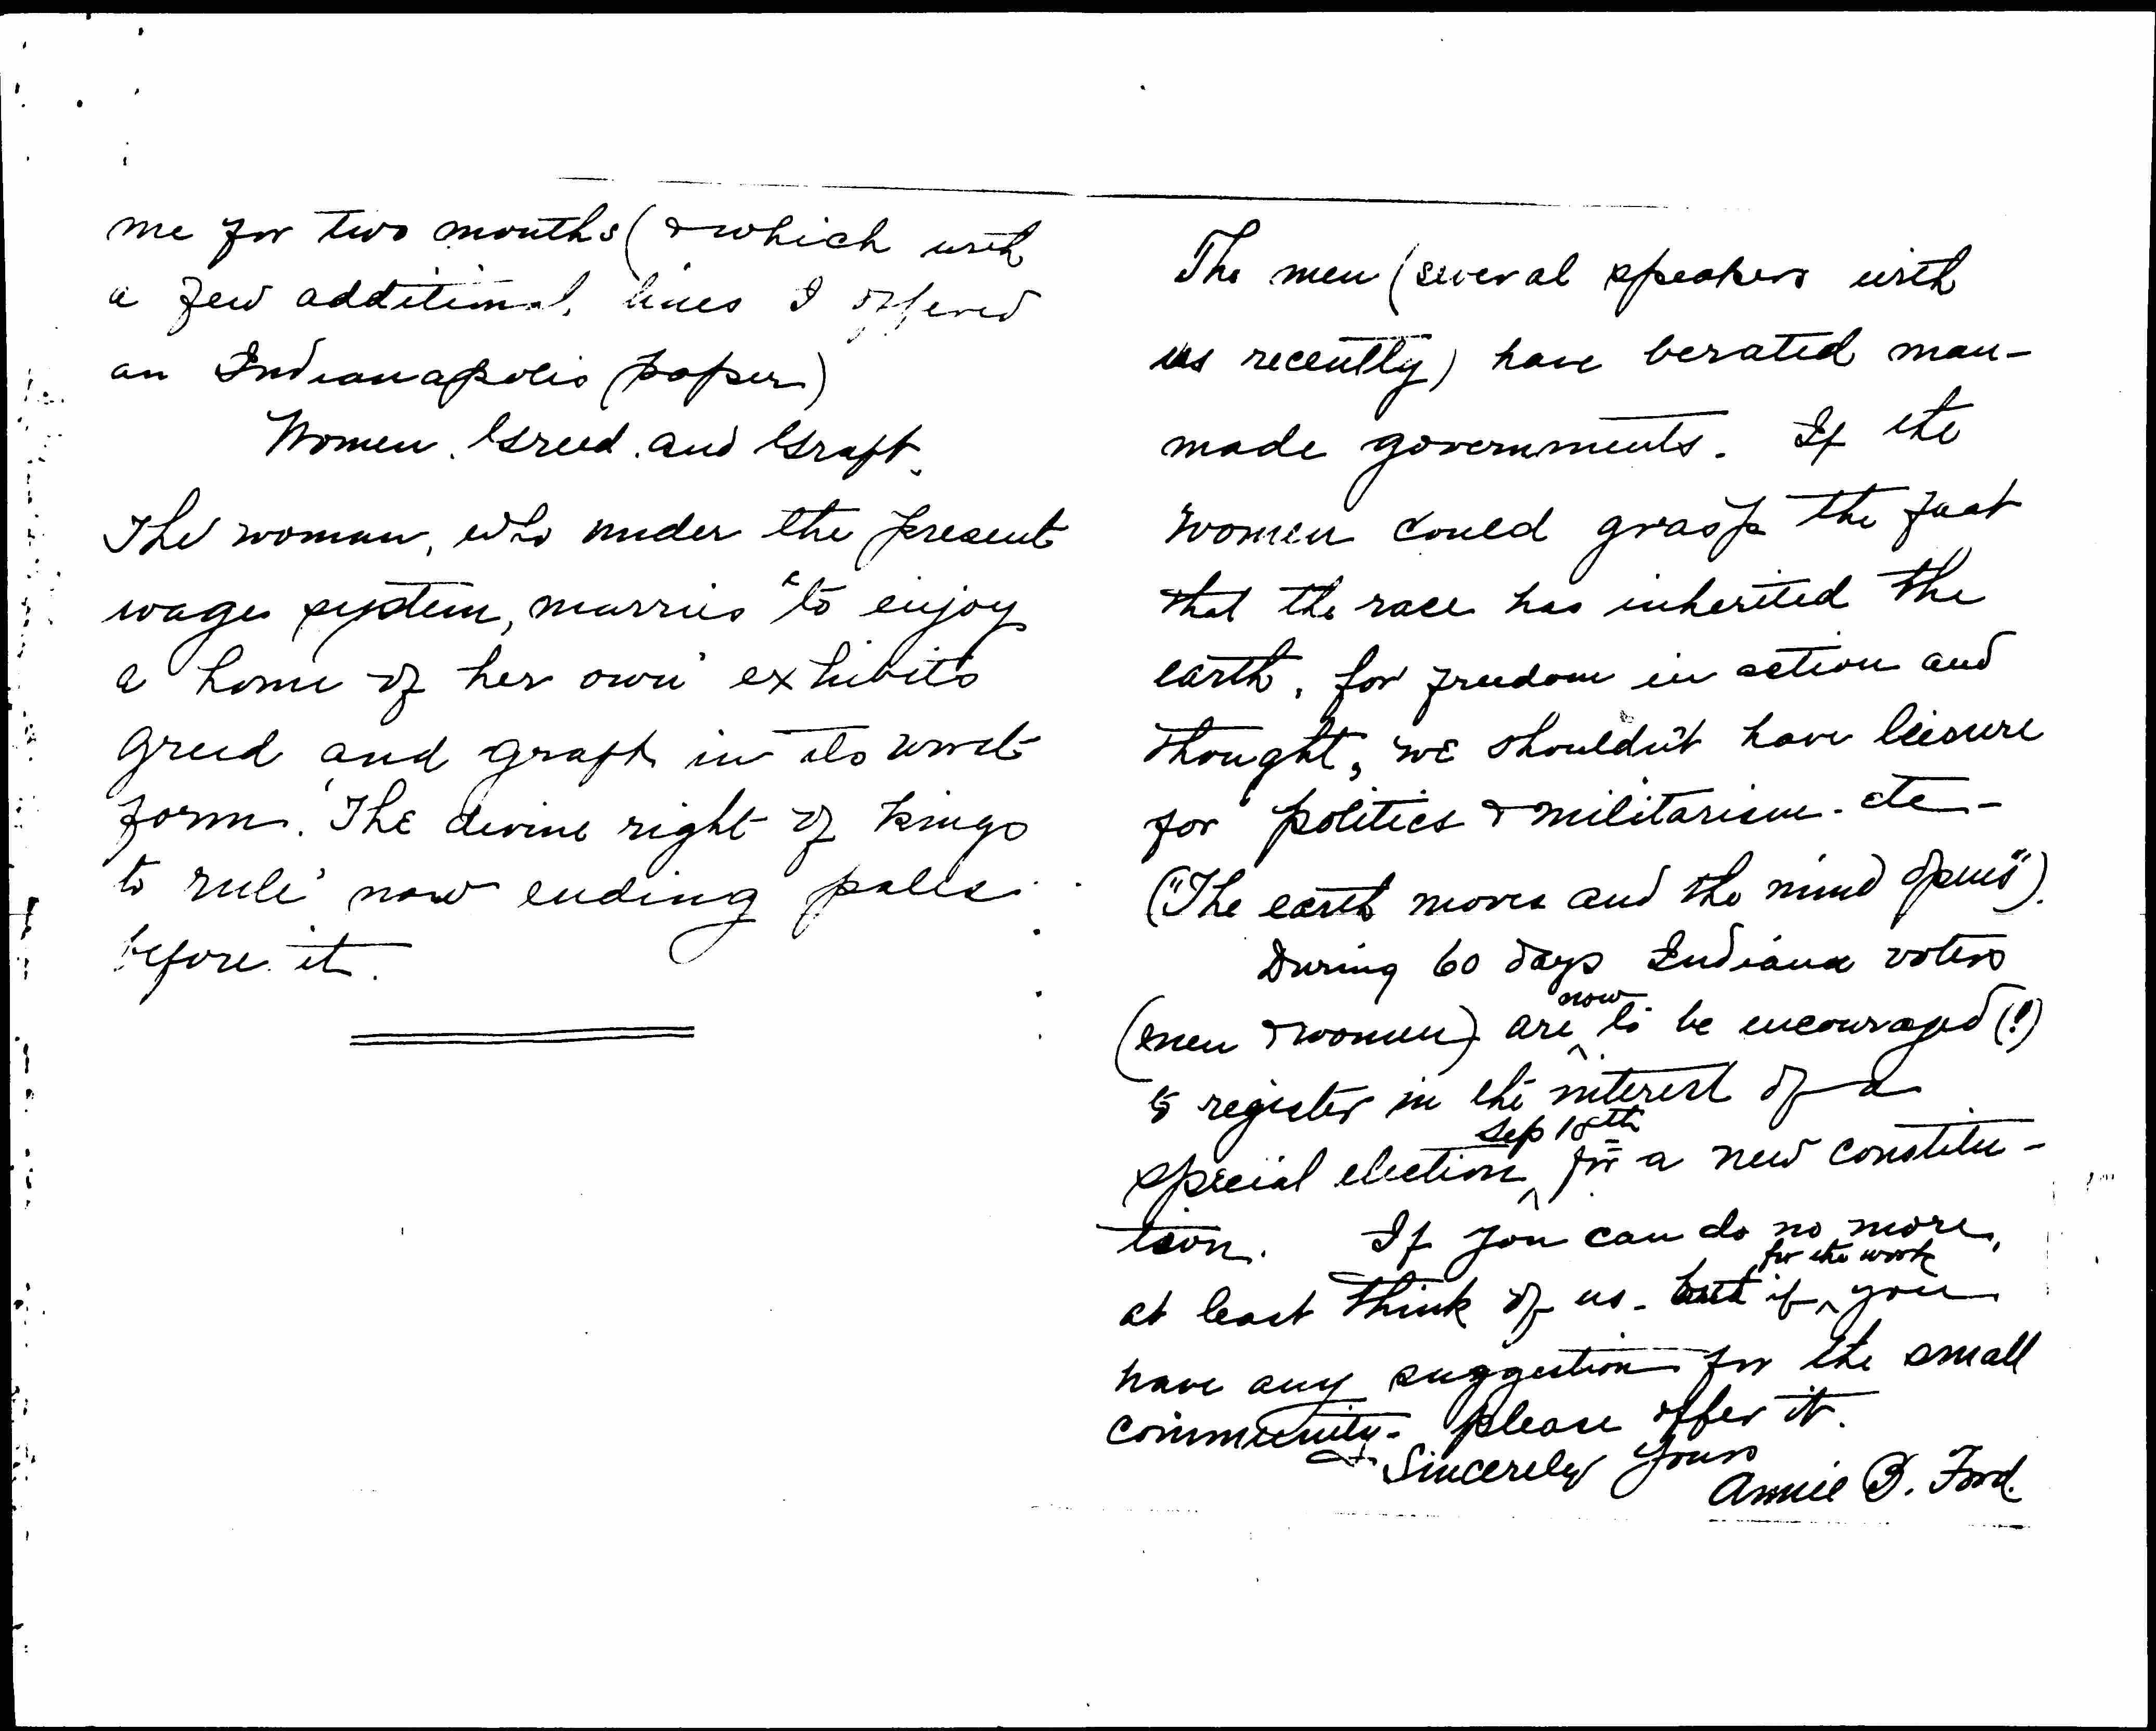 me for two months (& which with
a few additional lines I offered
an Indianapolis paper)
Women. Greed. and Graft.
The woman, who under the present
wage system, marries "to enjoy
a home of her own" exhibits
greed and graft in its worst
form. 'The divine right of kings
to rule' now ending pales
before it.
The men (several speakers with
us recently) have berated man-
made governments. If the
women could grasp the fact
that the race has inherited the
earth, for freedom in action and
thought, we shouldn't have leisure
for politics & militarism - etc -
("The earth moves and the mind opens").
During 60 days Indiana voters
(men & women) are now to be encouraged (!)
to register in the interest of a
special election Sep 18th for a new constitu-
tion. If you can do no more,
at least think of us - but if for the work you
have any suggestion for the small
community - please offer it.
Sincerely yours
Annie B. Ford.